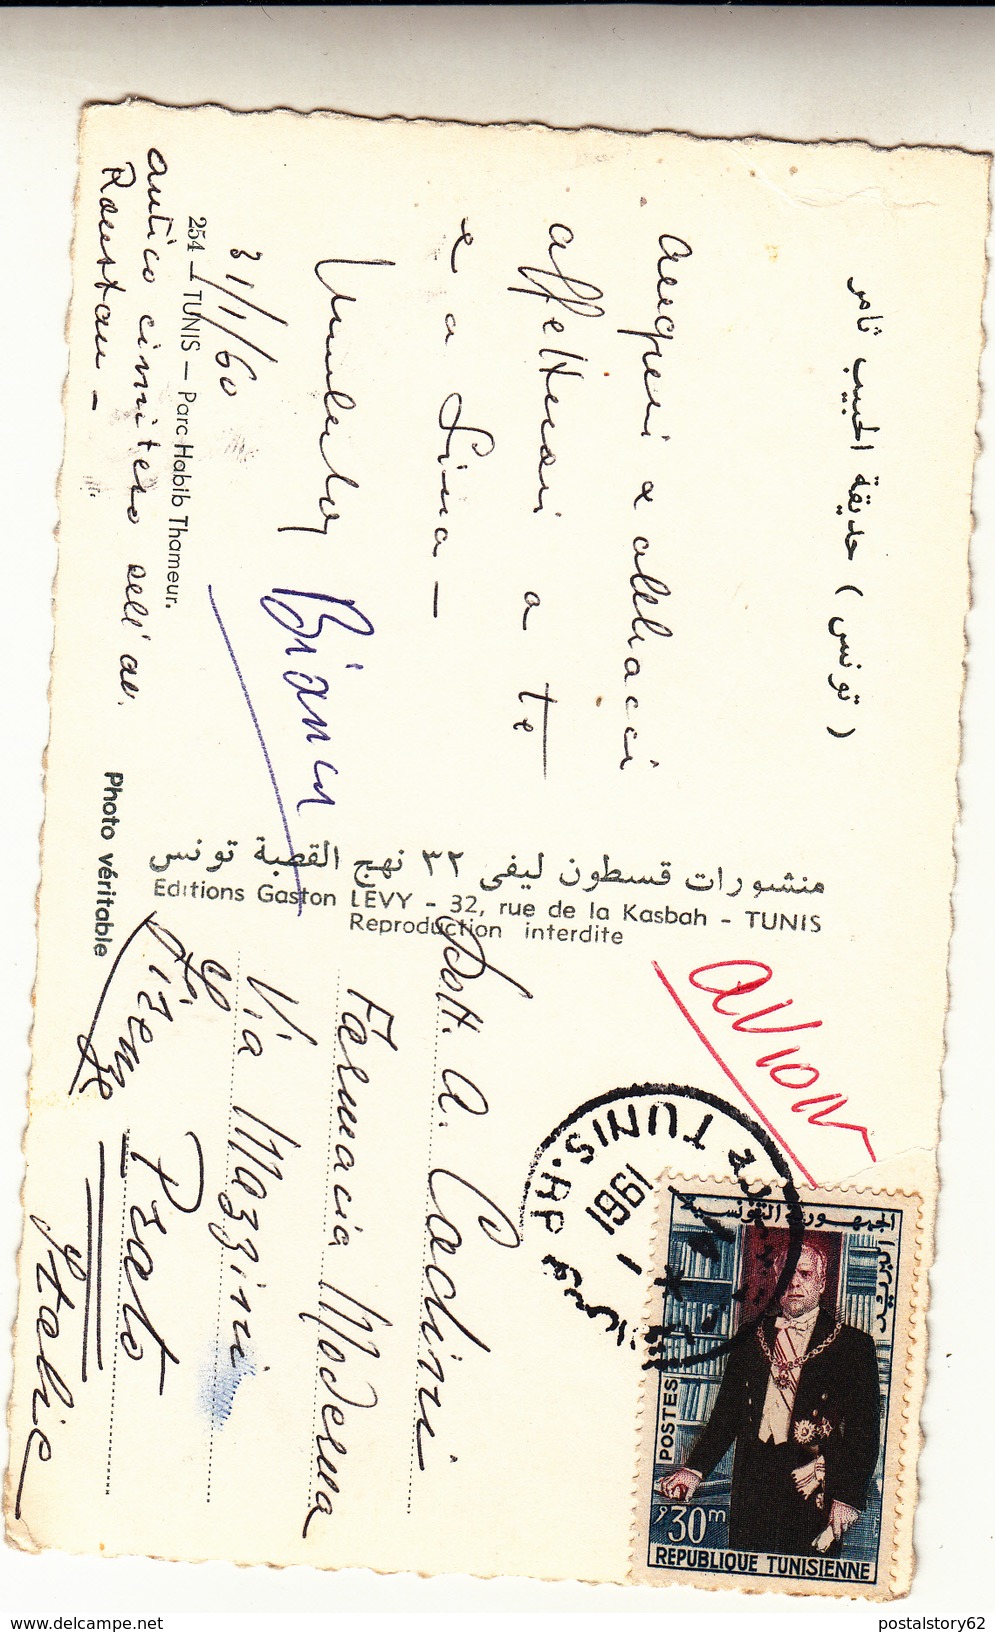 ( تونس ) حديقة الحبيب ثامر
auguri e abbracci
affettuosi a te
e a Lina —
Umberto Bianca
31/1/60
254 — TUNIS — Parc Habib Thameur.
antico cimitero dell'av.
Roustan —
Photo véritable
منشورات قسطون ليفى ٣٢ نهج القصبة تونس
Editions Gaston LÉVY - 32, rue de la Kasbah - TUNIS
Reproduction interdite
avion
Dott. A. Cardini
Farmacia Moderna
Via Mazzini
Prato
Firenze
Italie
TUNIS. RP
1961
الجمهورية التونسية
البريد
POSTES
30m
REPUBLIQUE TUNISIENNE
postalstory62